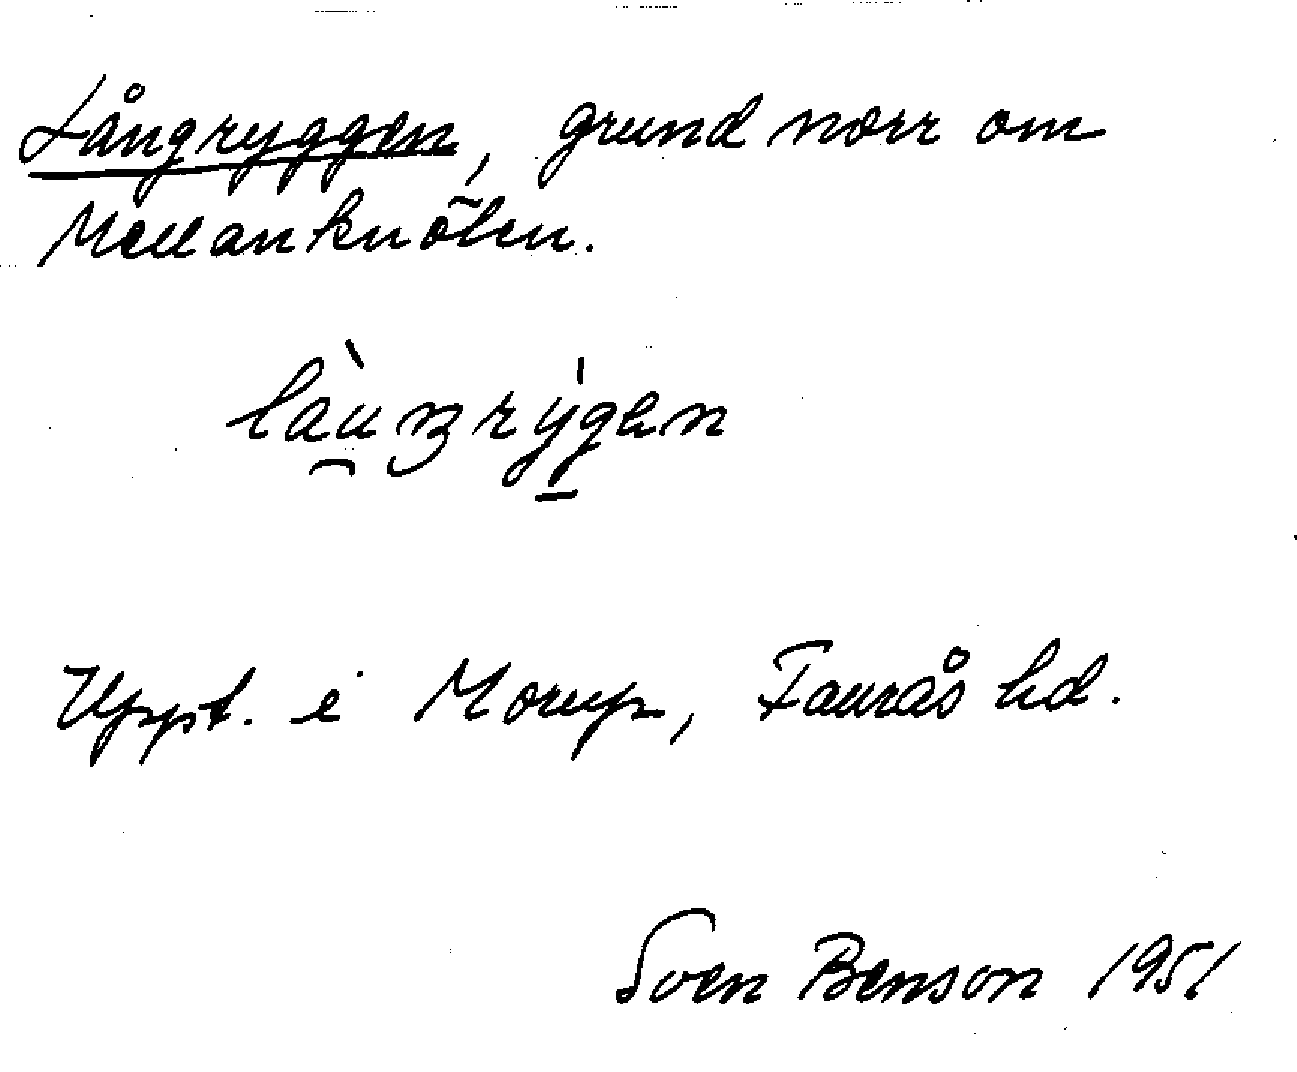 Långryggen, grund norr om
Mellanknölen.
làu̯ŋrẏgen
Uppt. i Morup, Faurås hd.
Sven Benson 1951